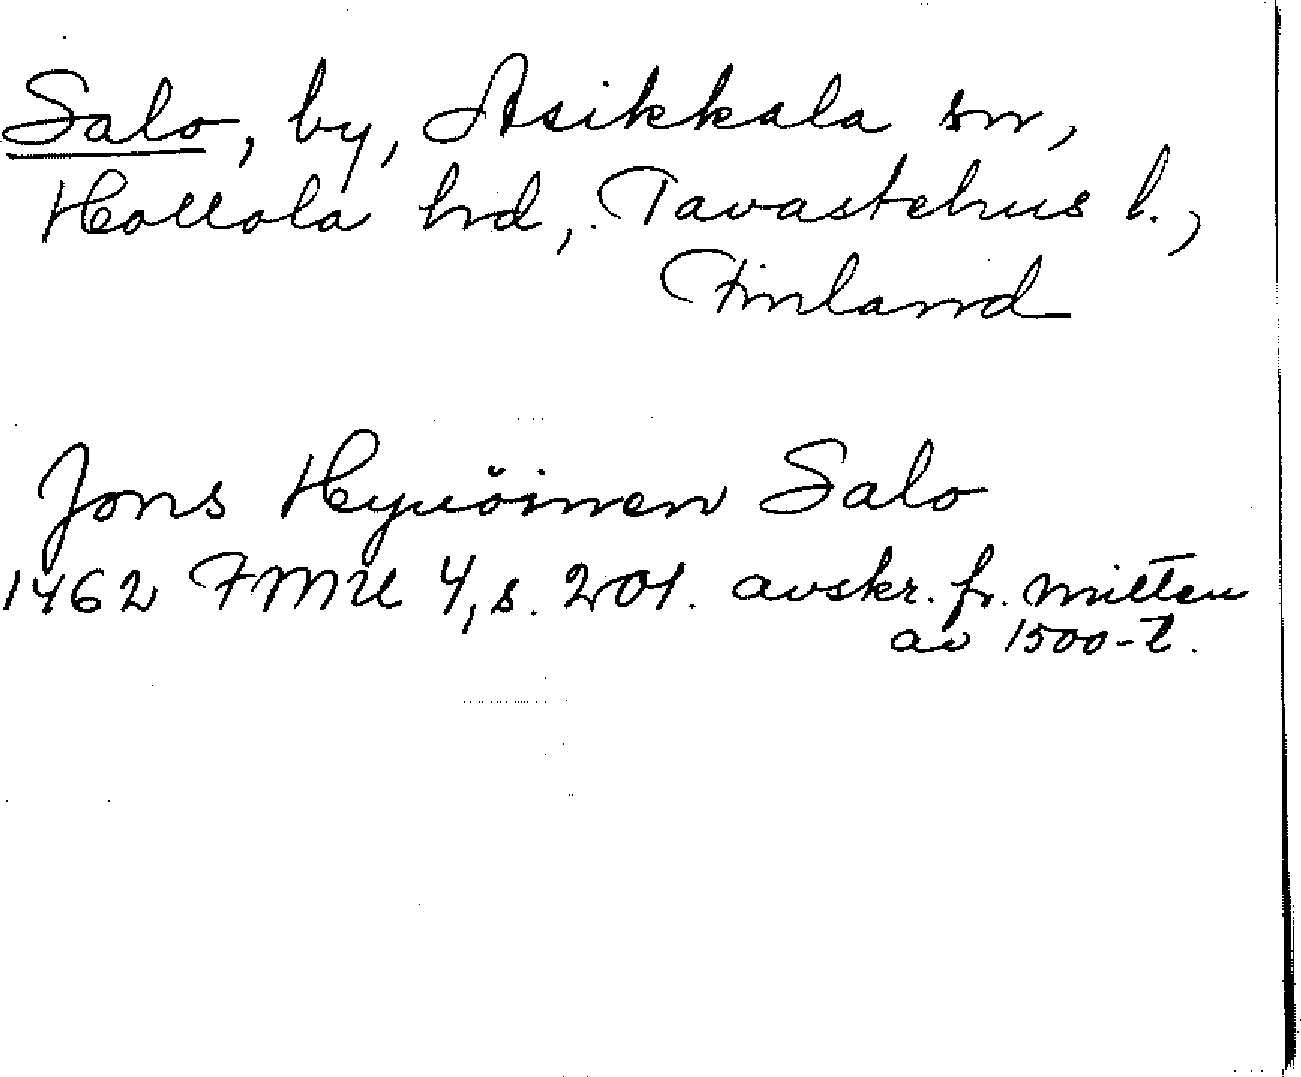 Salo, by, Asikkala sn,
Hollola hd, Tavastehus l.,
Finland
Jons Hyuöinen Salo
1462 FMU 4, s. 201. avskr. fr. mitten
av 1500-t.